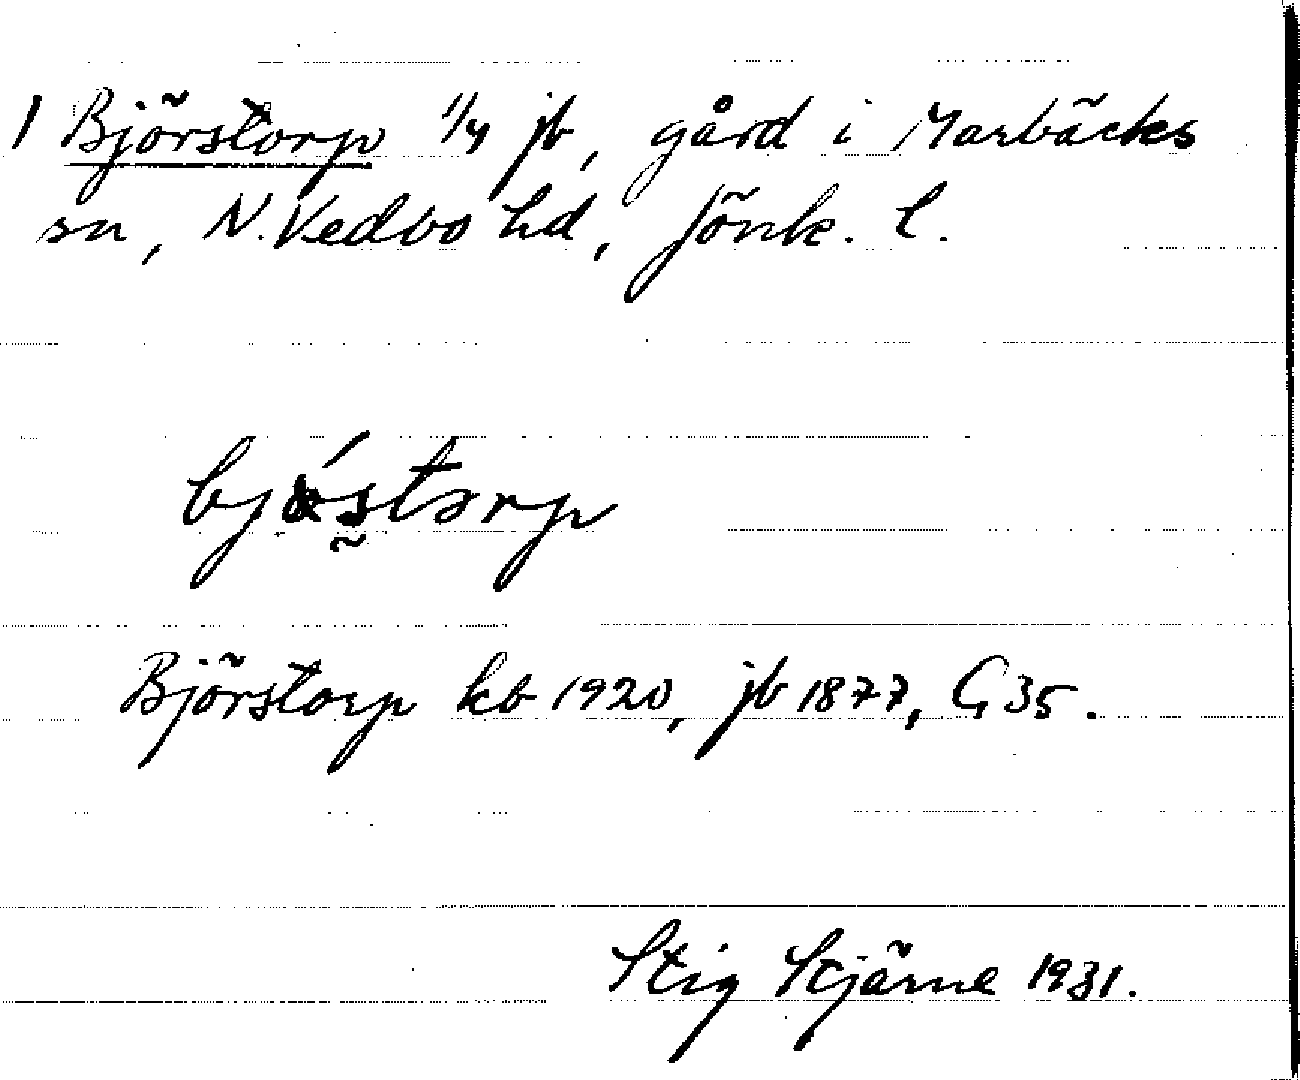 1 Björstorp 1/4 jb, gård i Marbäcks
sn, N. Vedbo hd, Jönk. l.
bjǿstorp
Björstorp kb 1920, jb 1877, G 35.
Stig Stjärne 1931.